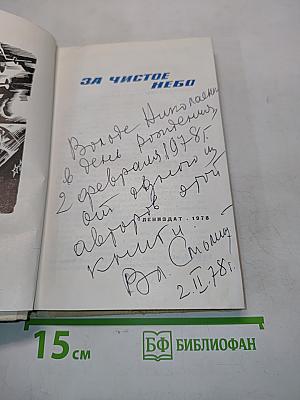 ЗА ЧИСТОЕ
НЕБО
Володе Николаеву
в день рождения
2 февраля 1978 г.
от одного из
авторов этой
книги
ЛЕНИЗДАТ · 1978
Вл.
2.II.78 г.
15 см
БФ БИБЛИОФАН